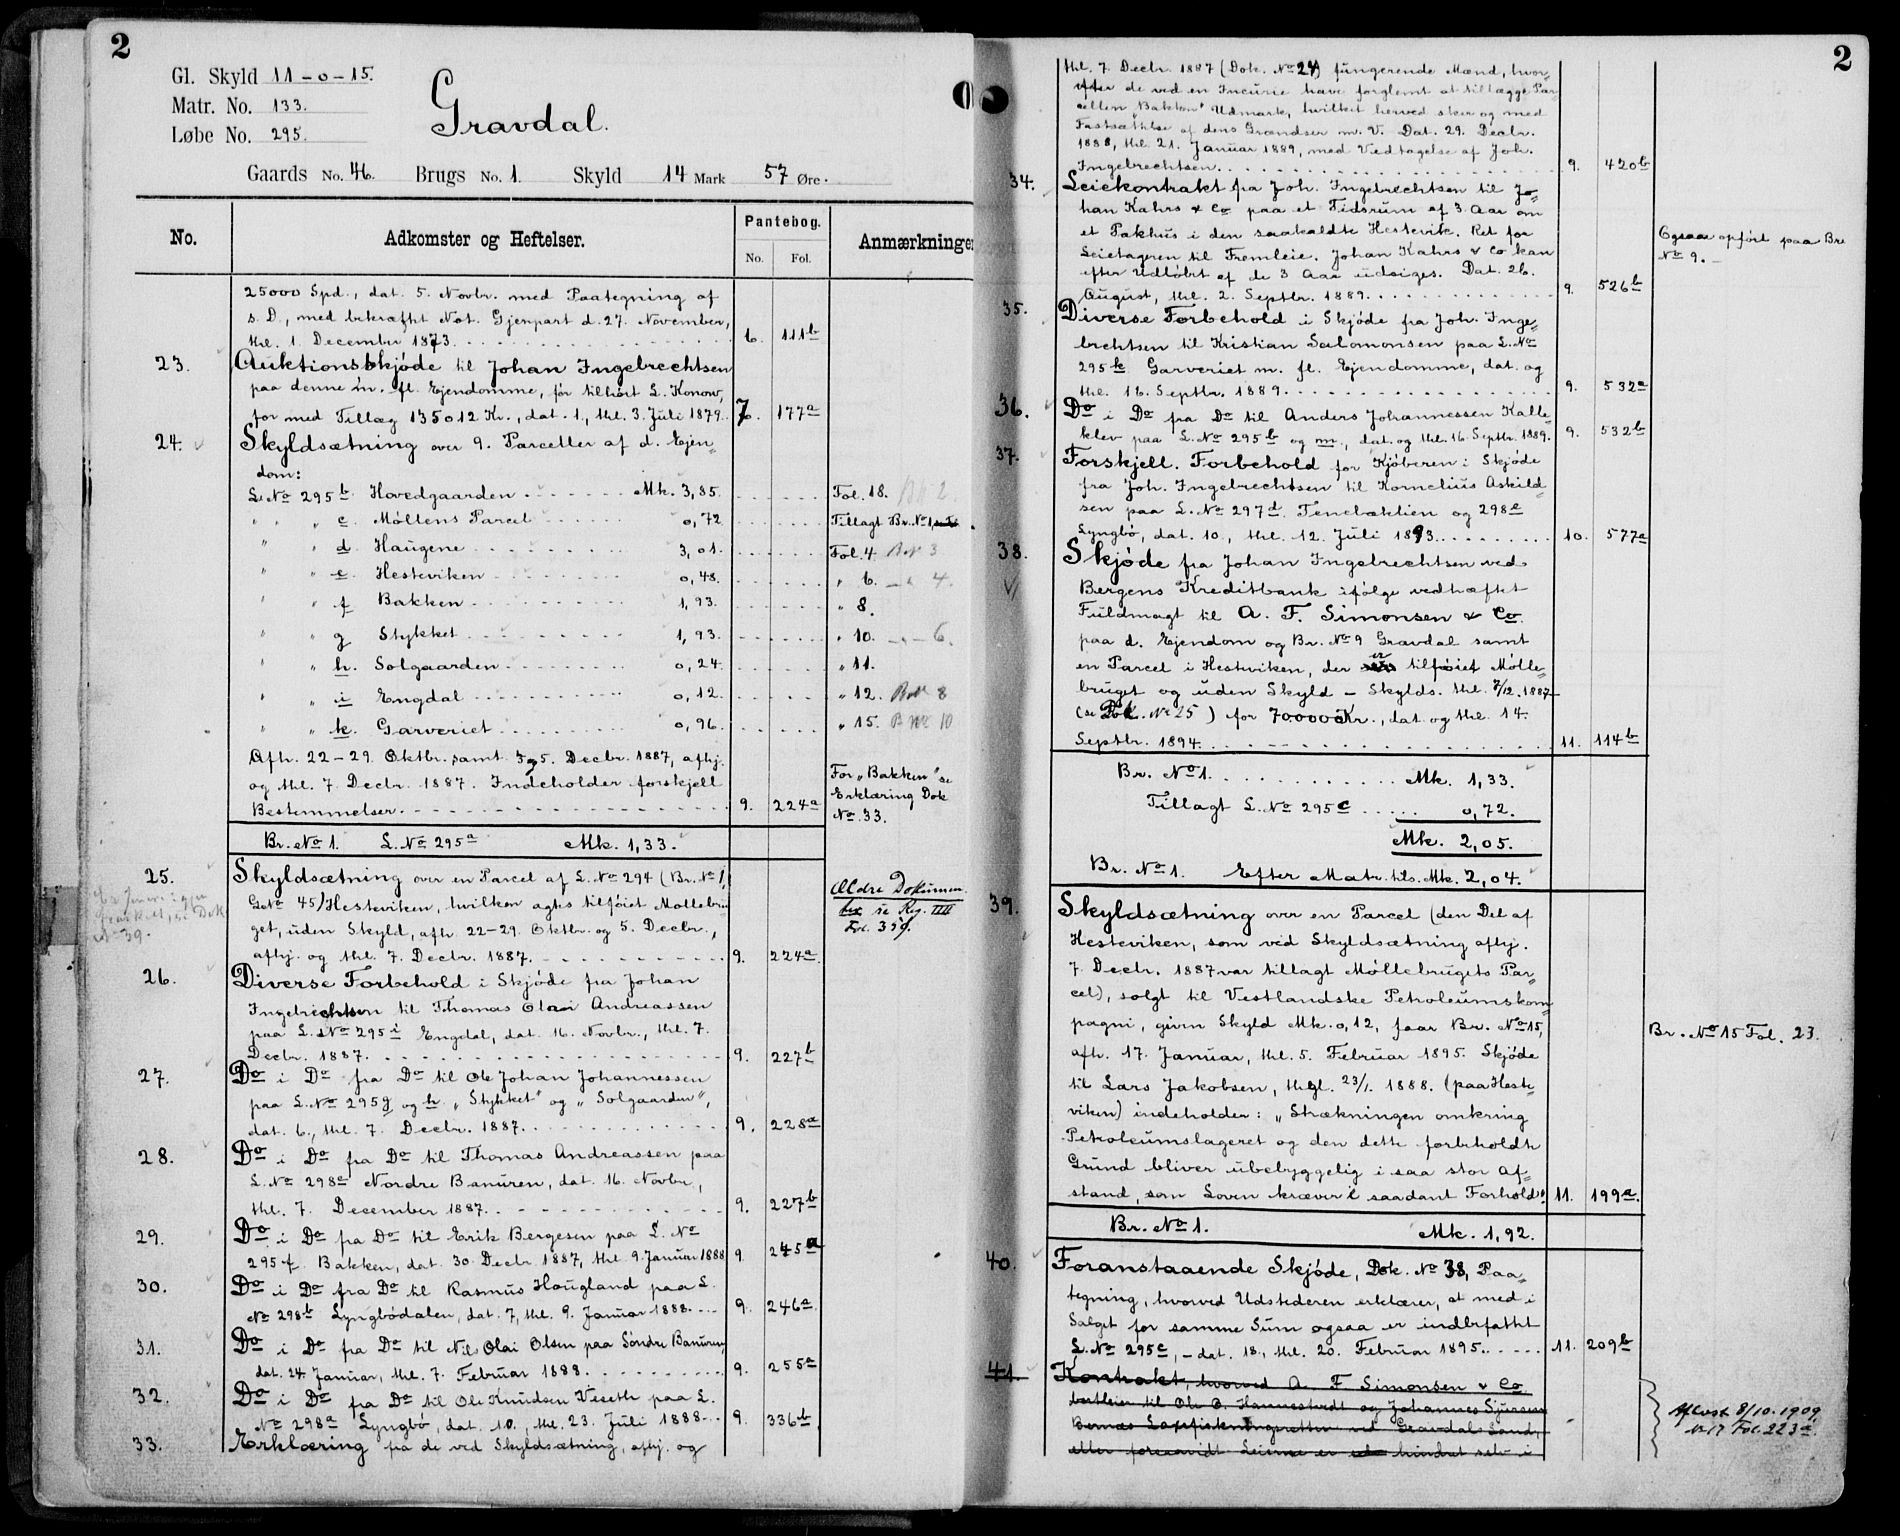 2
Gl. Skyld 11-0-15.
Matr. No. 133.
Løbe No. 295.
Gravdal.
Gaards No. 46. Brugs No. 1. Skyld 14 Mark 57 Øre.
No. Adkomster og Heftelser. Pantebog. No. Fol. Anmærkninger
25000 Spd., dat. 5. Novbr. med Paategning af
s. D., med bekræftet Not. Gjenpart d. 27. November,
thl. 1. December 1873. 6. 111b
23. Auktionsskjøde til Johan Ingebrechtsen
paa denne m. fl. Ejendomme, før tilhørt L. Konow,
for med Tillæg 135012 Kr., dat. 1., thl. 3. Juli 1879. 7. 177a
24. Skyldsætning over 9. Parceller af d. Ejen-
dom:
L. No 295 b Hovedgaarden Mk. 3,85. Fol. 18.
" " " c. Møllens Parcel 0,72 Tillagt Br. No 1
" " " d. Haugene 3,01. Fol. 4. B.No 3
" " " e. Hesteviken 0,48. " 6. 4.
" " " f. Bakken 1,93. " 8.
" " " g Stykket 1,93. " 10. 6.
" " " h. Solgaarden 0,24. " 11.
" " " i Engdal 0,12. " 12. B.No 8
" " " k. Garveriet 0,96. " 15. B No 10
Afh. 22-29. Oktbr. samt 3 og 5. Decbr. 1887, afhj.
og thl. 7. Decbr. 1887. Indeholder forskjell
Bestemmelser. 9. 224a
For „Bakken" se
Erklæring Dok
No 33.
Br. No 1. L. No 295a Mk. 1,33.
25. Skyldsætning over en Parcel af L. No 294 (Br. No 1,
G.No 45) Hesteviken, hvilken agtes tilføiet Møllebru-
get, uden Skyld, afh. 22-29. Oktbr. og 5. Decbr.,
afhj. og thl. 7. Decbr. 1887. 9. 224a.
Ældre Dokumen-
ter se Reg. IIII
Fol. 359.
No 39.
26. Diverse Forbehold i Skjøde fra Johan
Ingebrechtsen til Thomas Olai Andreassen
paa L. No 295 i Engdal, dat. 16. Novbr., thl. 7.
Decbr. 1887. 9. 227b
27. Do i Do fra Do til Ole Johan Johannessen
paa L. No 295g og h. „Stykket" og „Solgaarden",
dat. 6., thl. 7. Decbr. 1887. 9. 228a
28. Do i Do fra Do til Thomas Andreassen paa
L. No 298e Nordre Banuren, dat. 16. Novbr.,
thl. 7. December 1887. 9. 227b
29. Do i Do fra Do til Erik Bergesen paa L. No
295 f. Bakken, dat. 30. Decbr. 1887, thl. 9. Januar 1888 9. 245a
30. Do i Do fra Do til Rasmus Hougland paa L.
No 298b Lyngbødalen, dat. 7, thl. 9. Januar 1888. 9. 246a.
31. Do i Do fra Do til Nils Olai Olsen paa Søndre Banuren,
dat. 24. Januar, thl. 7. Februar 1888. 9. 255a
32. Do i Do fra Do til Ole Knudsen Veseth paa L.
No 298a Lyngbø, dat. 10., thl. 23. Juli 1888. 9. 336b.
33. Erklæring fra de ved Skyldsætning, afhj. og
2
thl. 7. Decbr. 1887 (Dok. No 24) fungerende Mænd, hvor-
efter de ved en Incurie have forglemt at tillægge Par-
cellen „Bakken" Udmark, hvilket herved sker og med
Fastsættelse af dens Grændser m. V. Dat. 29. Decbr.
1888, thl. 21. Januar 1889, med Vedtagelse af Joh.
Ingebrechtsen. 9. 420b
34. Leiekontrakt fra Joh. Ingebrechtsen til Jo-
han Kahrs & Co paa et Tidsrum af 3 Aar om
et Pakhus i den saakaldte Hestevik. Ret for
Leietageren til Fremleie. Johan Kahrs & Co kan
efter Udløbet af de 3 Aar udsiges. Dat. 26.
August, thl. 2. Septbr. 1889. 9. 526b
Ogsaa opført paa Br.
No 9.
35. Diverse Forbehold i Skjøde fra Joh. Inge-
brechtsen til Kristian Salomonsen paa L. No
295k Garveriet m. fl. Ejendomme, dat. og
thl. 16. Septbr. 1889. 9. 532a
36. Do i Do fra Do til Anders Johannessen Kalle-
klev paa L. No 295b og m., dat. og thl. 16. Septbr. 1889. 9. 532b
37. Forskjell. Forbehold for Kjøberen i Skjøde
fra Joh. Ingebrechtsen til Kornelius Askild-
sen paa L. No 297d. Tenebæktien og 298e
Lyngbø, dat. 10., thl. 12. Juli 1893. 10. 577a
38. Skjøde fra Johan Ingebrechtsen ved
Bergens Kreditbank ifølge vedhæftet
Fuldmagt til A. F. Simonsen & Co
paa d. Ejendom og Br. No 9 Gravdal samt
en Parcel i Hesteviken, der er tilføiet Mølle-
bruget og uden Skyld – Skylds. thl. 7/12. 1887
(se Dok. No 25) for 70.000 Kr., dat. og thl. 14.
Septbr. 1894. 11. 114b
Br. No 1. Mk. 1,33.
Tillagt L. No 295c 0,72.
Mk. 2,05.
Br. No 1. Efter Matr. tils. Mk. 2,04.
39. Skyldsætning over en Parcel (den Del af
Hesteviken, som ved Skyldsætning afhj.
7. Decbr. 1887 var tillagt Møllebrugets Par-
cel), solgt til Vestlandske Petroleumskom-
pagni, given Skyld Mk. 0,12, faar Br. No 15,
afh. 17. Januar, thl. 5. Februar 1895. Skjøde
til Lars Jakobsen, thgl. 23/1. 1888. (paa Heste-
viken) indeholder: „Strækningen omkring
Petroleumslageret og den dette forbeholdte
Grund bliver ubebyggelig i saa stor Af-
stand, som Loven kræver i saadant Forhold". 11. 199a.
Br. No 15 Fol. 23.
Br. No 1. Mk. 1,92.
40. Foranstaaende Skjøde, Dok. No 38, Paa-
tegning, hvorved Udstederen erklærer, at med i
Salget for samme Sum ogsaa er indbefattet
L. No 295c, – dat. 18., thl. 20. Februar 1895. 11. 209b
41. Kontrakt, hvorved A. F Simonsen & Co
bortleier til Ole O. Hannestvedt og Johannes Sjursen
Bernæs Laxefiskningsretten ved Gravdals Land,
eller forsaavidt Leierne er hindret selv i
Aflyst 8/10. 1909,
No 17 Fol. 223a.